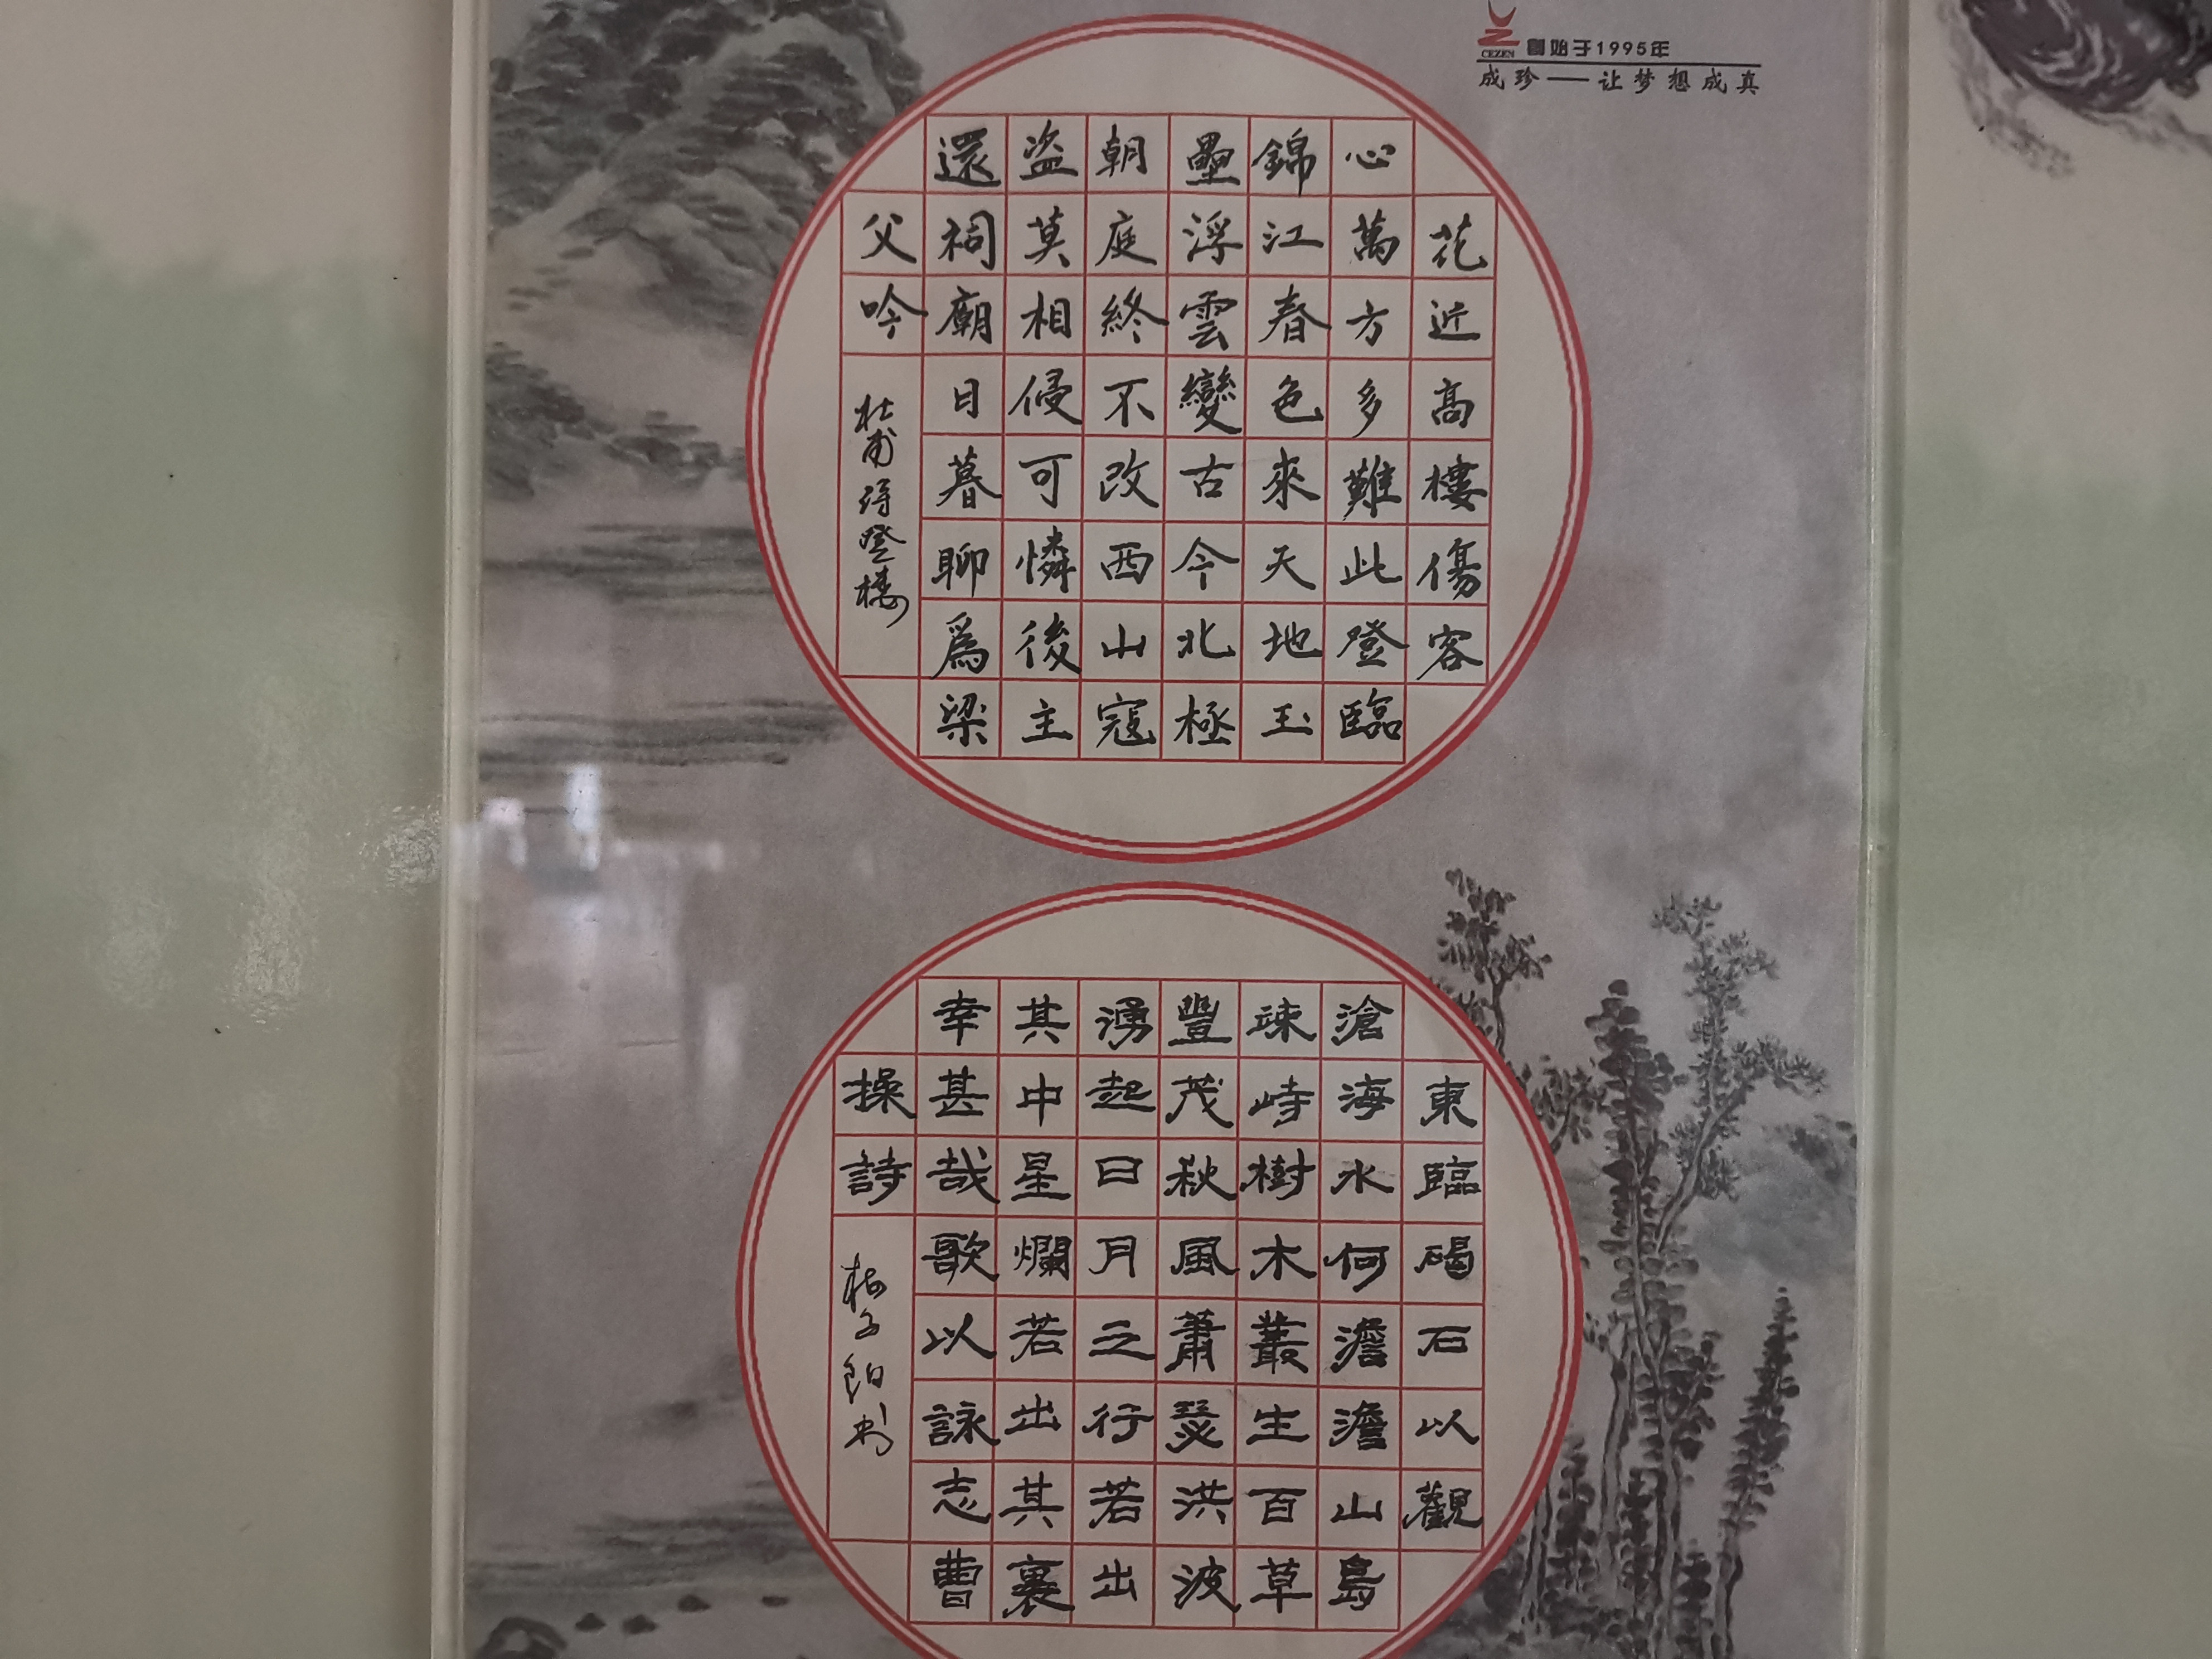 CEZEN 創始于1995年
成珍——让梦想成真
花近高樓傷客
心萬方多難此登臨
錦江春色來天地玉
壘浮雲變古今北極
朝庭終不改西山寇
盗莫相侵可憐後主
還祠廟日暮聊為梁
父吟
杜甫诗登楼
東臨碣石以觀
滄海水何澹澹山島
竦峙樹木叢生百草
豐茂秋風蕭瑟洪波
湧起日月之行若出
其中星爛若出其裏
幸甚哉歌以詠志曹
操詩